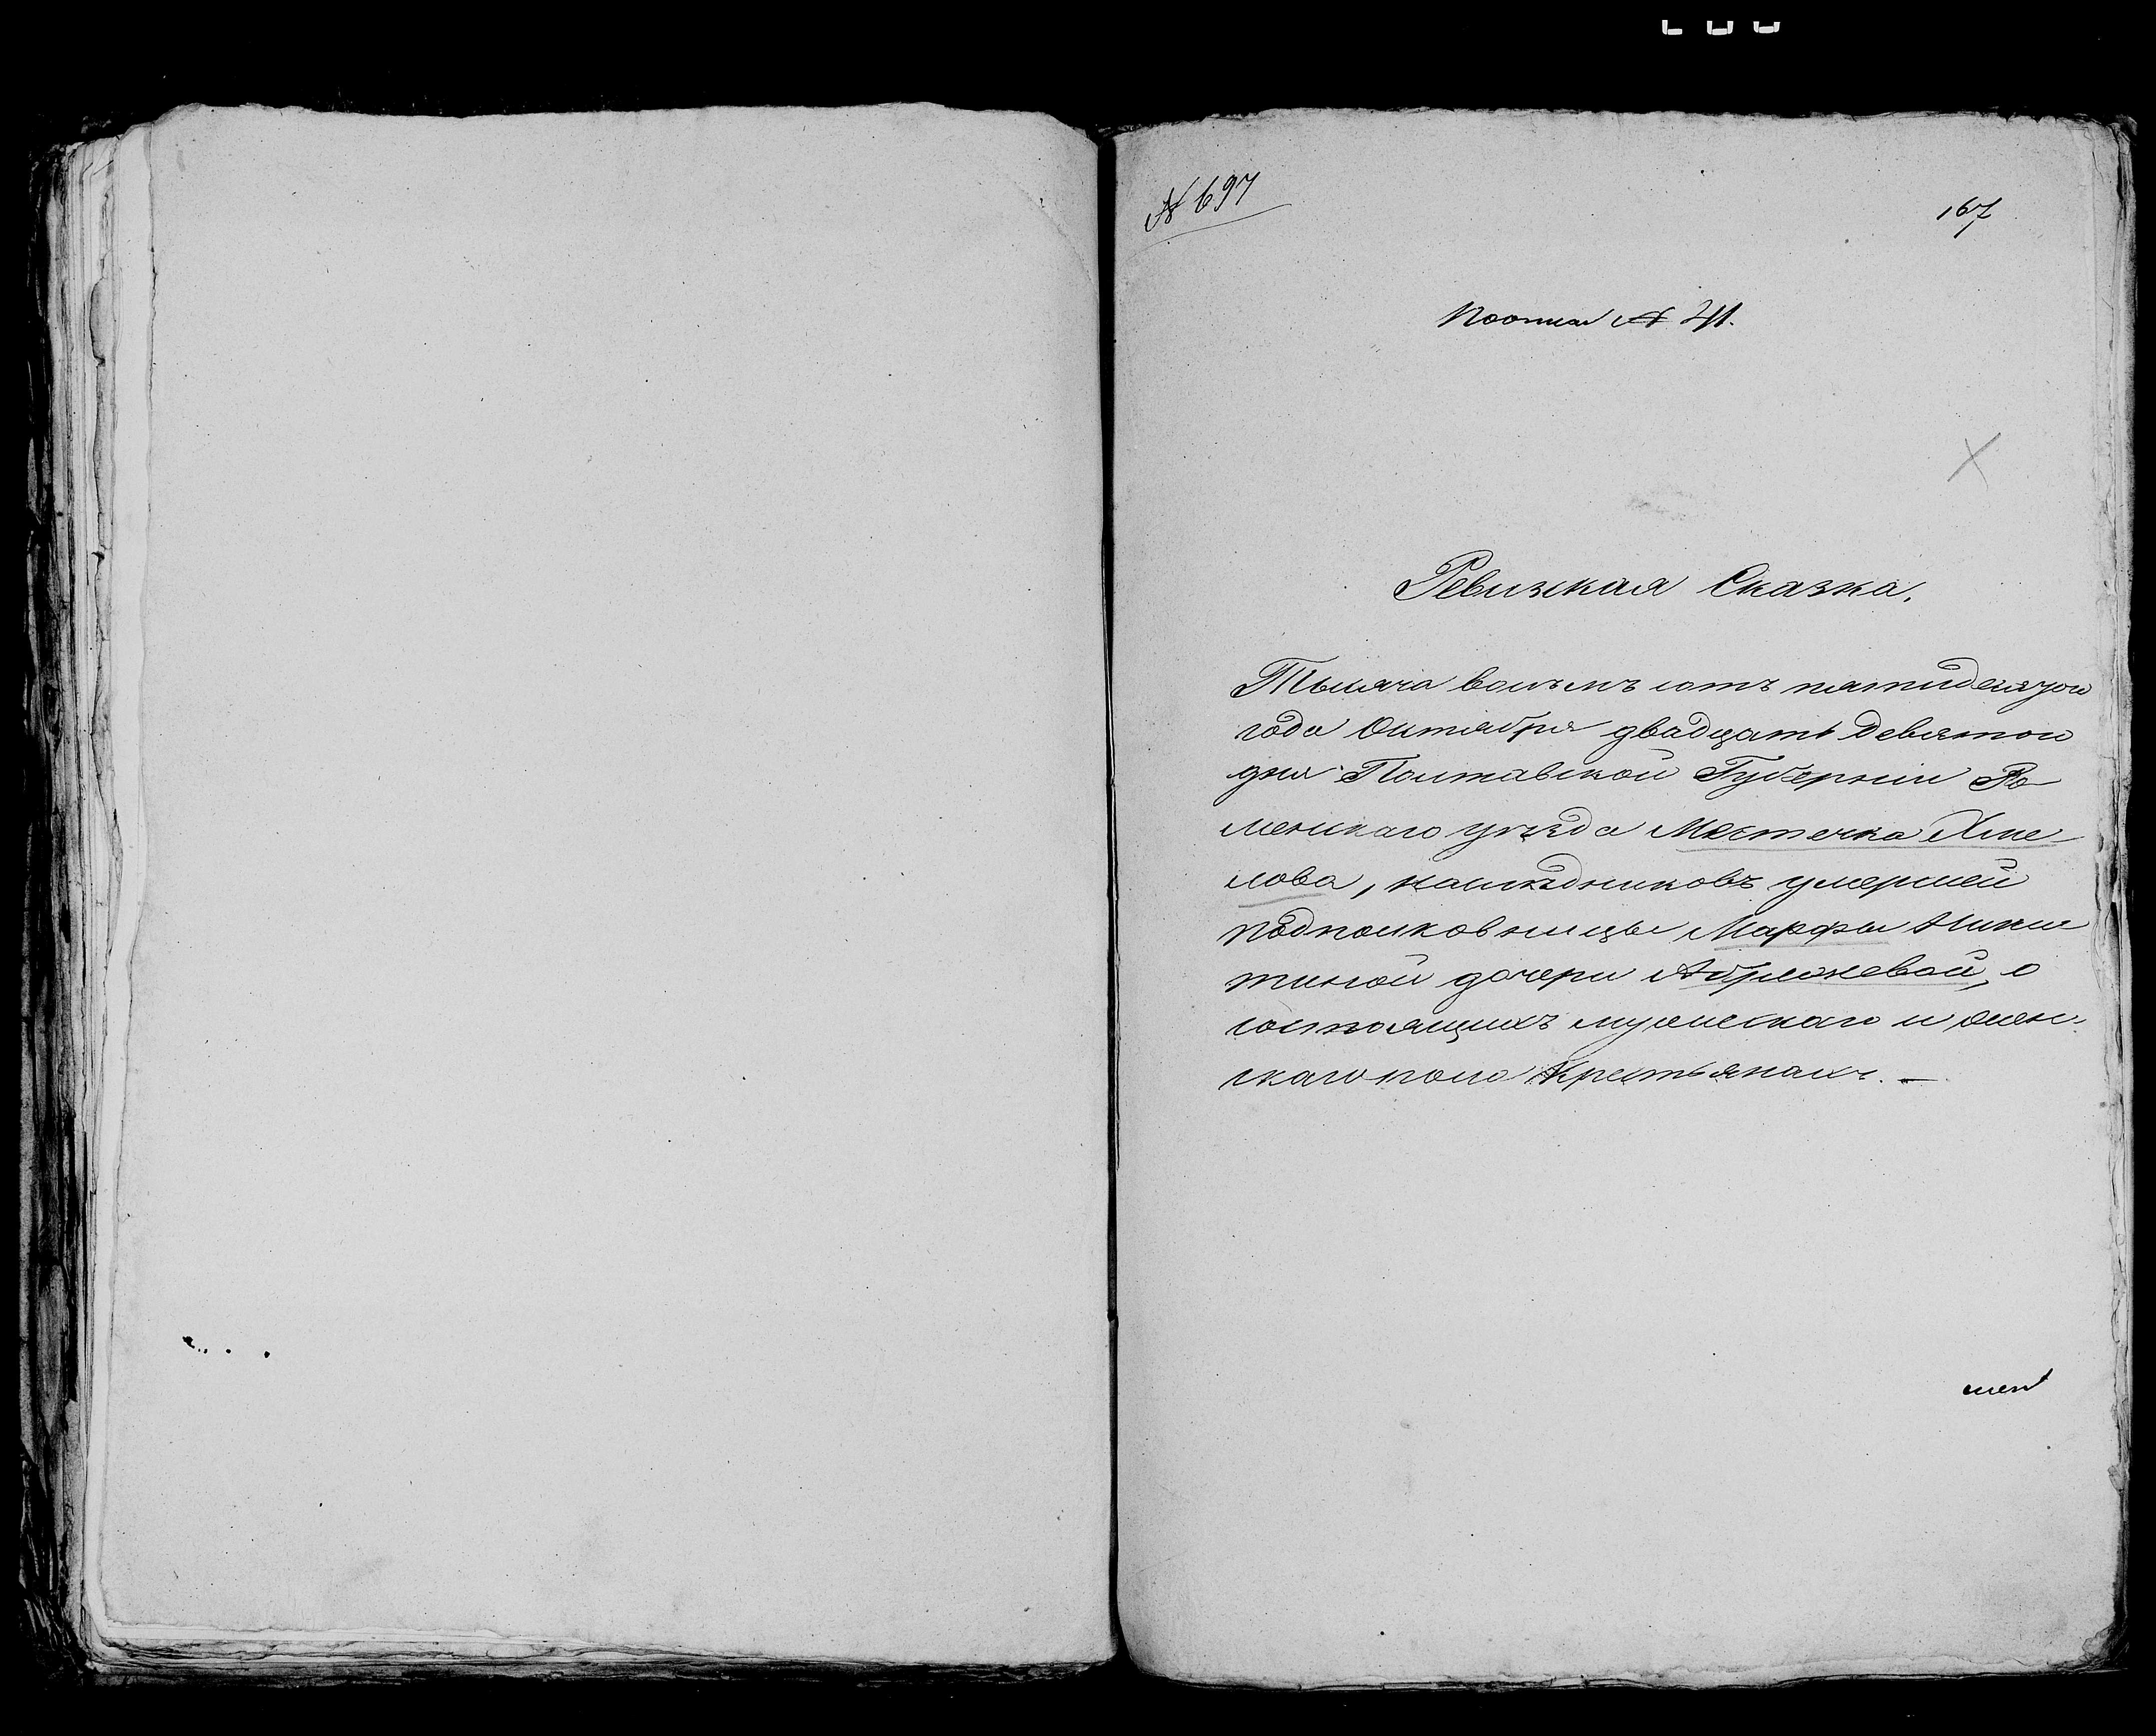 № 697
167
№ 41.
Ревизкая Сказка.
Тысяча восемъ сотъ пятидесятого
года Октября двадцать девятого
дня Полтавской Губернiи Ро-
менскаго уѣзда Мѣстечка Хме-
лова, наслѣдниковъ умершей
подполковницы Марфы Ники-
тиной дочери о
состоящихъ мужескаго и жен-
скаго пола крестьянахъ. —